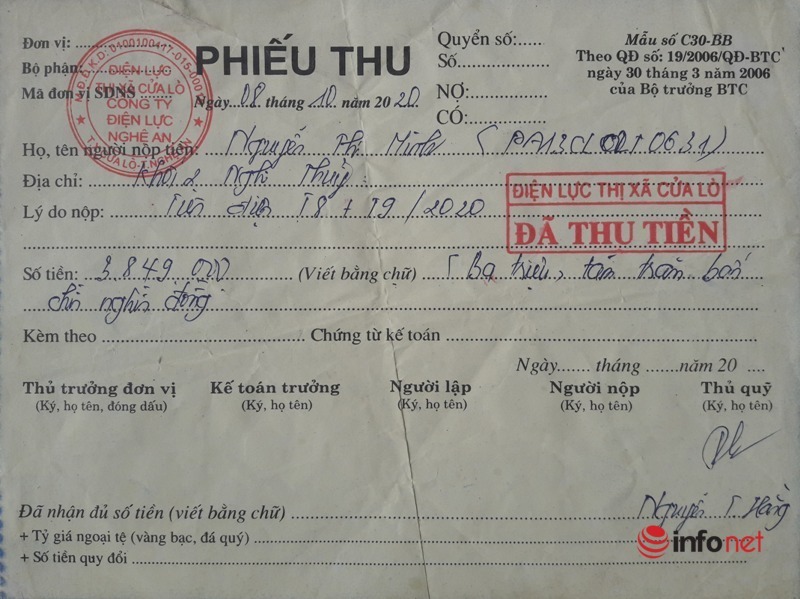 Đơn vị: Quyển số: Mẫu số C30-BB
Bộ phận: PHIẾU THU Số Theo QĐ số: 19/2006/QĐ-BTC
Mã đơn vị SDNS NỢ: ngày 30 tháng 3 năm 2006
Ngày 08 tháng 10 năm 2020 CÓ: của Bộ trưởng BTC
M.S.Đ.K.D: 0100100417-015-000
ĐIỆN LỰC
THỊ XÃ CỬA LÒ
CÔNG TY
ĐIỆN LỰC
NGHỆ AN
T.X CỬA LÒ-T.NGHỆ AN
Họ, tên người nộp tiền: Nguyễn Thị Minh (PA13CL0210631)
Địa chỉ: Khối 2 Nghi Thủy
Lý do nộp: Tiền điện T8 + T9/2020
ĐIỆN LỰC THỊ XÃ CỬA LÒ
ĐÃ THU TIỀN
Số tiền: 3.849.000 (Viết bằng chữ) (Ba triệu, tám trăm bốn
chín nghìn đồng
Kèm theo Chứng từ kế toán
Ngày tháng năm 20
Thủ trưởng đơn vị Kế toán trưởng Người lập Người nộp Thủ quỹ
(Ký, họ tên, đóng dấu) (Ký, họ tên) (Ký, họ tên) (Ký, họ tên) (Ký, họ tên)
Đã nhận đủ số tiền (viết bằng chữ) Nguyễn T Hằng
+ Tỷ giá ngoại tệ (vàng bạc, đá quý)
+ Số tiền quy đổi
infonet